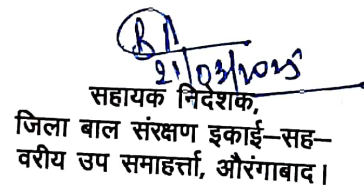 21/03/2025
सहायक निदेशक,
जिला बाल संरक्षण इकाई–सह–
वरीय उप समाहर्त्ता, औरंगाबाद।